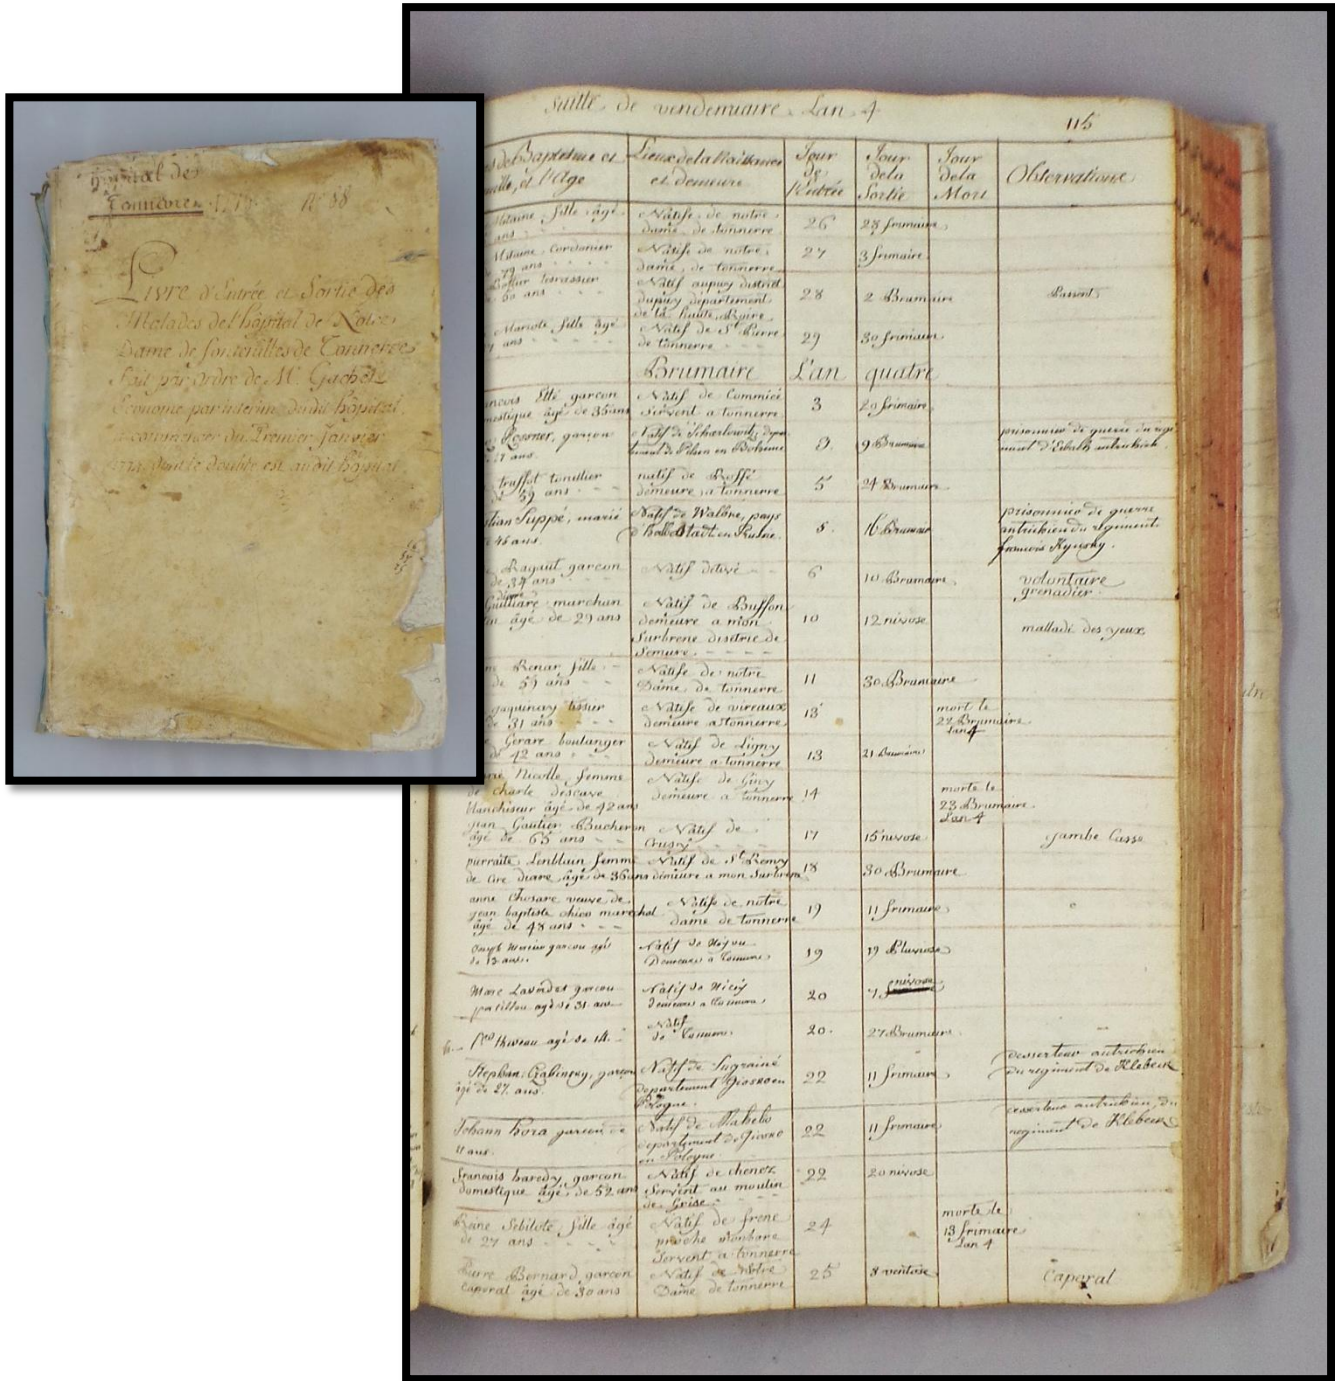 hôpital de
Tonnerre
N° 88
Livre d'Entrée et Sortie des
Malades de l'hôpital de Notre
Dame de fontenilles de Tonnerre
fait par ordre de Mr. Gachet
Econome par interim dudit hôpital
a commencer du Premier Janvier
suitte de vendemiaire Lan 4
115
de Baptesme et
et l'Age
Lieux de la Naissance
et demeure
Jour
de
l'Entrée
Jour
de la
Sortie
Jour
de la
Mort
Observations
fille âgé
ans
Natife de notre
dame de tonnerre
26
28 frimaire
Mitaine Cordonier
79 ans
Natife de notre
dame de tonnerre
27
3 frimaire
terrassier
60 ans
Natif aupuy district
dupuy département
de la haute Loire
28
2 Brumaire
Passent
Mariote fille âgé
ans
Natife de St Pierre
de tonnerre
29
30 frimaire
Brumaire L'an quatre
ancois Etté garcon
mestique âgé de 35 ans
Natif de Commicé
Servent a tonnerre
3
29 frimaire
Rosner, garçon
27 ans
en Bohême
9 Brumaire
prisonnier de guerre du régi
ment d' autrichien
truffot tonillier
59 ans
natif de Roffé
demeure a tonnerre
5
24 Brumaire
tian Suppé, marié
45 ans.
Natif de Walbne, pays
d'halbestadt en Prusse.
5.
16 Brumair
prisonnier de guerre
autrichien du régiment
françois Kynsky.
Ragaut garcon
de 34 ans
Natif
6
10 Brumaire
volontaire
grenadier
Guilliare marchan
âgé de 29 ans
Natif de Buffon
demeure a mon
Surbrene disitric de
Semure
10
12 nivose
malladi des yeux
Renar fille
de 59 ans
Natife de notre
Dame de tonnerre
11
30 Brumaire
gaquinay tissier
de 31 ans
Natife de vireaux
demeure a tonnerre
13
mort le
22 Brumaire
Lan 4
Gerare boulanger
de 42 ans
Natife de Ligny
demeure a tonnerre
13
21 Brumaire
Nicolle femme
de charle descave
blanchiseur âgé de 42 ans
Natife de Givry
demeure a tonnerre
14
morte le
23 Brumaire
Lan 4
jean Gautier Bucheron
âgé de 65 ans
Natif de
Crusy
17
15 nivose
jambe Casse
pierraite Lenblain femme
de Cire diare âgé de 36 ans
Natif de St Remy
demeure a mon Surbrene
18
30 Brumaire
anne Chosare veuve de
jean baptiste chico marechal
âgé de 48 ans
Natife de notre
dame de tonnerre
19
11 frimaire
garcon agé
de 13 ans
Natif de Noyon
Demeure à Tonnerre
19
19 Pluviose
Marc Lavirdet garcon
patillon agé de 31 ans
Natif de Nicéy
demeure a Tonnerre
20
nivose
Riveau agé de 14
Natif
de Tonnerre
20.
27 Brumaire
Stephan Rabinsky, garçon
âgé de 27 ans.
Natif de Lugrainé
departement Giosno en
Pologne.
22
11 frimaire
desserteur autrichien
du regiment de Klebeck
Johann hora garcon de
11 ans
Natif de Mahelo
departement de Giosno
en Pologne.
22
11 frimaire
desserteur autrichien, du
regiment de Klebeck
francois haredy garcon
domestique âgé de 52 ans
Natif de chenez
Servent au moulin
de Grise
22
20 nivose
Reine Sebilote fille âgé
de 27 ans
Natif de frene
proche monbare
Servent a tonnerre
24
morte le
13 frimaire
Lan 4
Pierre Bernard garcon
Caporal âgé de 30 ans
Natif de Notre
Dame de tonnerre
25
8 ventose
Caporal